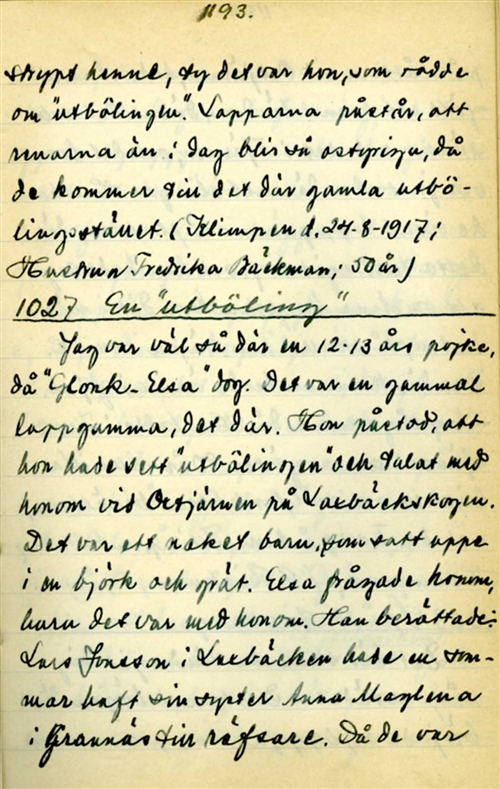 1193.
strypt henne, ty det var hon, som rådde
om "utbölingen". Lapparna påstår, att
renarna än i dag blir så ostyriga, då
de kommer till det där gamla utbö-
lingsstället. (Klimpen d. 24-8-1917;
Hustrun Fredrika Bäckman; 50 år)
1027 En "utböling"
Jag var väl så där en 12-13 års pojke,
då "Glonk-Elsa" dog. Det var en gammal
lappgumma, det där. Hon påstod, att
hon hade sett "utbölingen" och talat med
honom vid Örtjärnen på Laxbäckskogen.
Det var ett naket barn, som satt uppe
i en björk och grät. Elsa frågade honom,
huru det var med honom. Han berättade:
Lars Jonsson i Laxbäcken hade en som-
mar haft sin syster Anna Maglena
i Grannäs till räfsare. Då de var